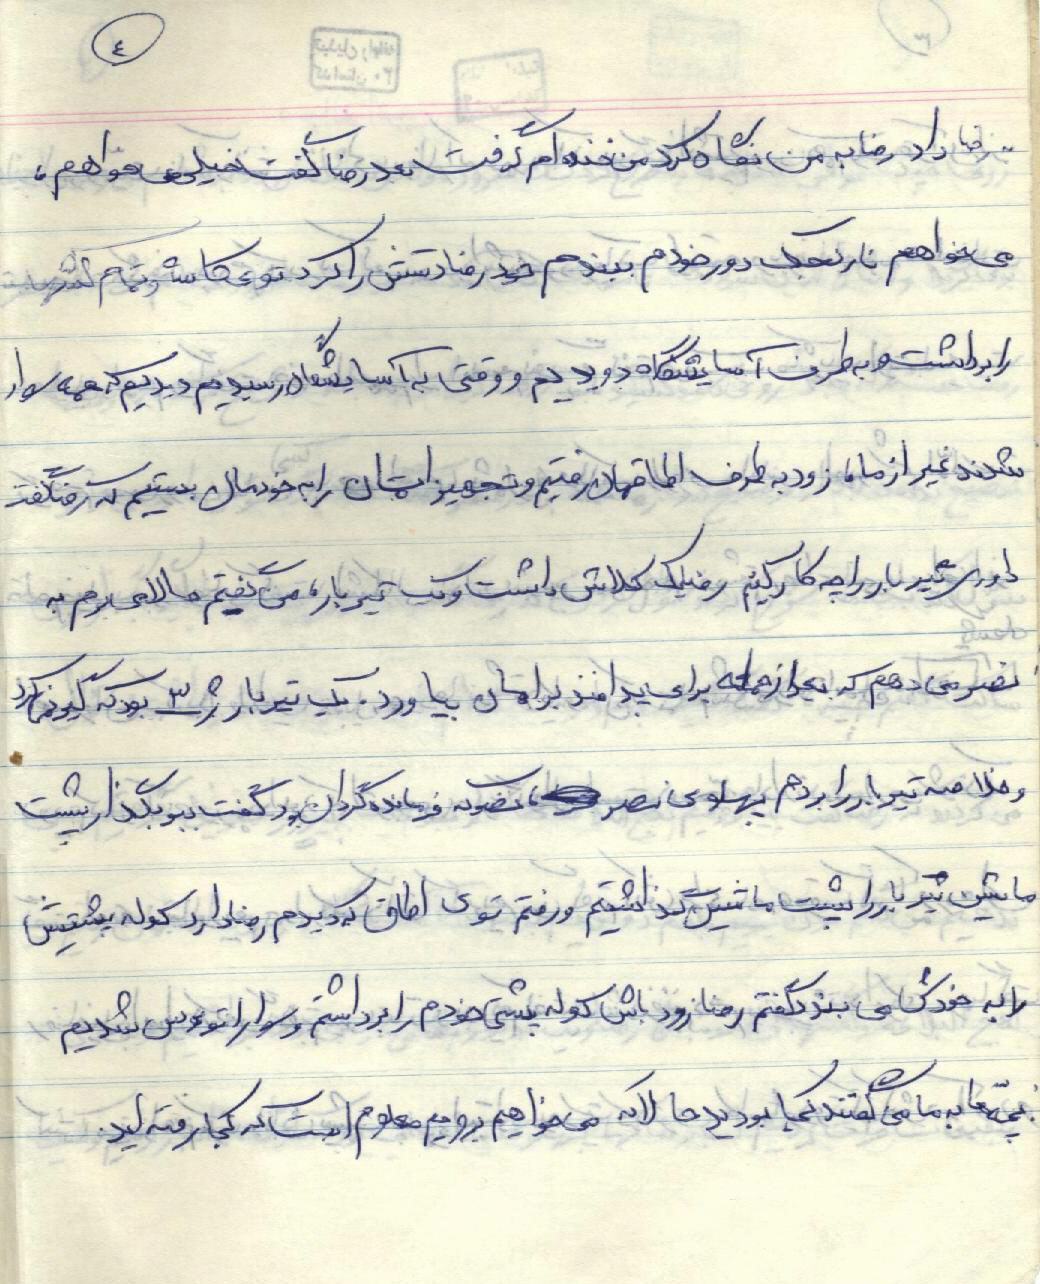 ٤
رضا داد رضا به من نگاه کرد من خنده ام گرفت بعد رضا گفت خیلی می خواهم،
می خواهم نارنجک دور خودم ببندم خود رضا دستش را کرد توی کاسه و تمام
را برداشت و به طرف آسایشگاه دویدیم و وقتی به آسایشگاه رسیدیم دیدیم که همه سوار
شدند غیر از ما، ما زود به طرف اطاقمان رفتیم و تجهیزاتمان را به خودمان بستیم که رضا گفت
داوری تیربار را چه کار کنیم رضا یک کلاش داشت و یک تیربار، من گفتم حالا می برم به
نصر می دهم که بعد از حمله برای پدافند برایمان بیاورد. یک تیربار ژ ٣ بود که گیر نمی کرد
و خلاصه تیربار را بردم پهلوی نصر که فرمانده گردان بود گفت ببر بگذار پشت
ماشین تیربار را پشت ماشین گذاشتم و رفتم توی اطاق که دیدم رضا دارد کوله پشتیش
را به خودش می بندد گفتم رضا زود باش کوله پشتی خودم را برداشتم و سوار اتوبوس شدیم
بچه ها به ما می گفتند کجا بودید حالا که می خواهیم برویم معلوم است که کجا رفته اید.